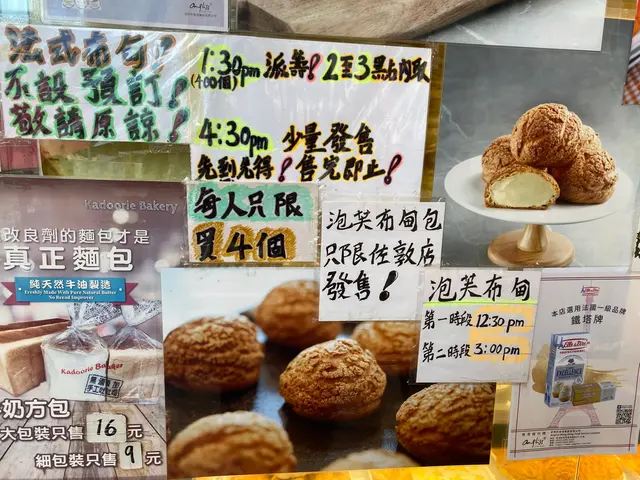 法式布甸！
不設預訂！
敬請原諒！
1:30pm 派籌！2至3點內取
(400個)
4:30pm 少量發售
先到先得！售完即止！
每人只限
買4個
泡芙布甸包
只限佐敦店
發售！
泡芙布甸
第一時段 12:30pm
第二時段 3:00pm
Kadoorie Bakery
改良劑的麵包才是
真正麵包
純天然牛油製造
Freshly Made With Pure Natural Butter
No Bread Improver
Kadoorie Bakery
奶方包
大包裝只售 16 元
細包裝只售 9 元
本店選用法國一級品牌
鐵塔牌